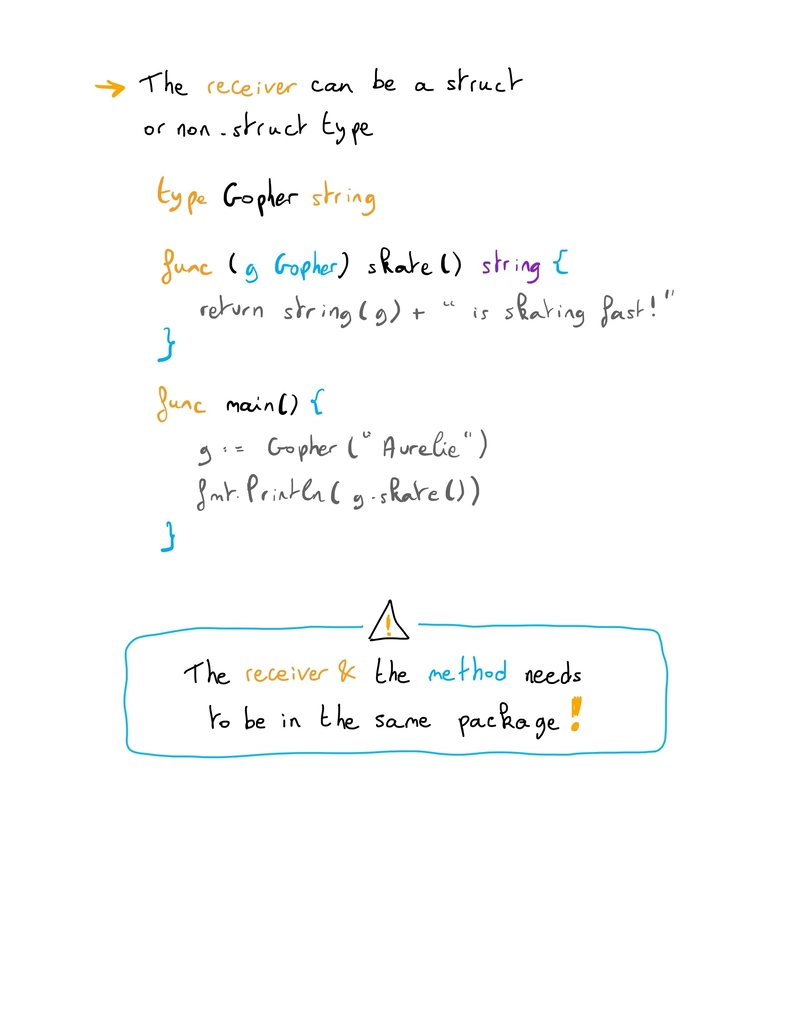 → The receiver can be a struct
or non-struct type
type Gopher string
func (g Gopher) skate() string {
return string(g) + " is skating fast!"
}
func main() {
g := Gopher("Aurelie")
fmt.Println(g.skate())
}
!
The receiver & the method needs
to be in the same package!